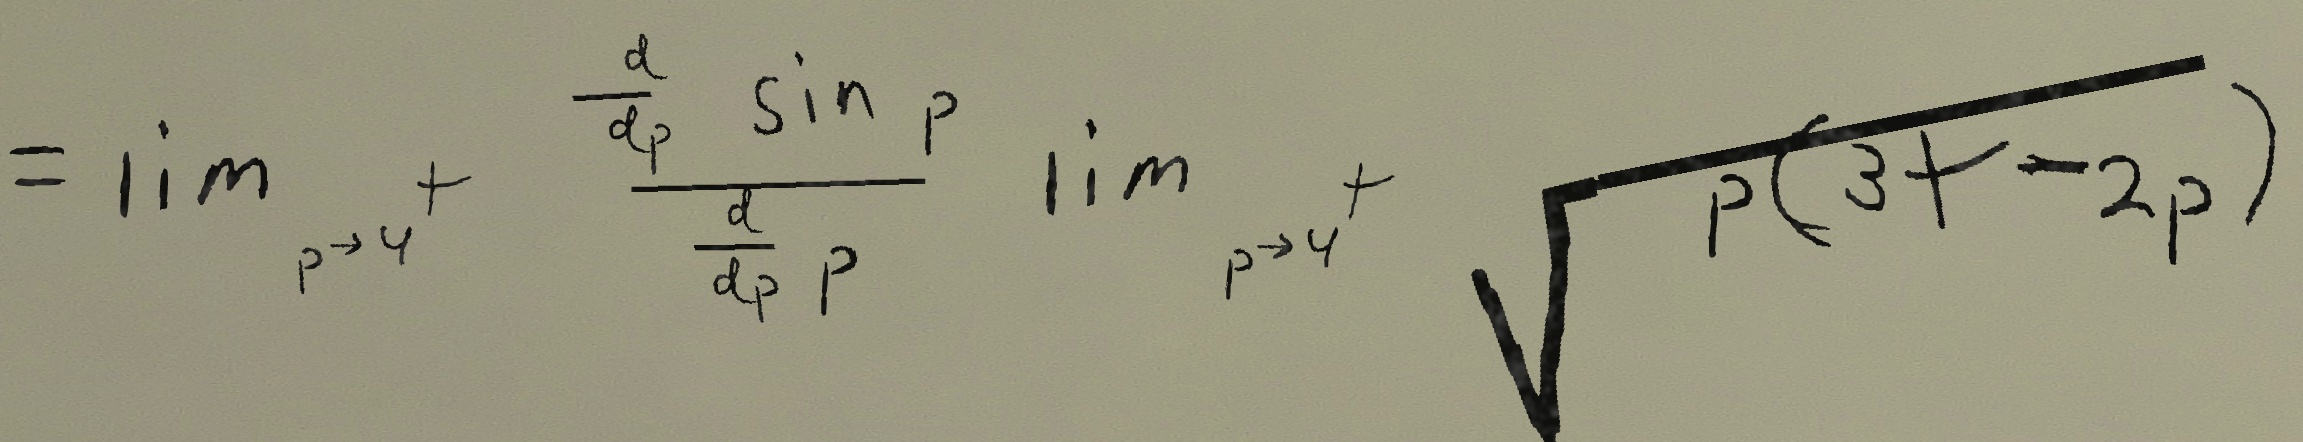 = \lim_{p \to 4^+} \frac{\frac{d}{dp} \sin p}{\frac{d}{dp} p} \lim_{p \to 4^+} \sqrt{p(3+-2p)}